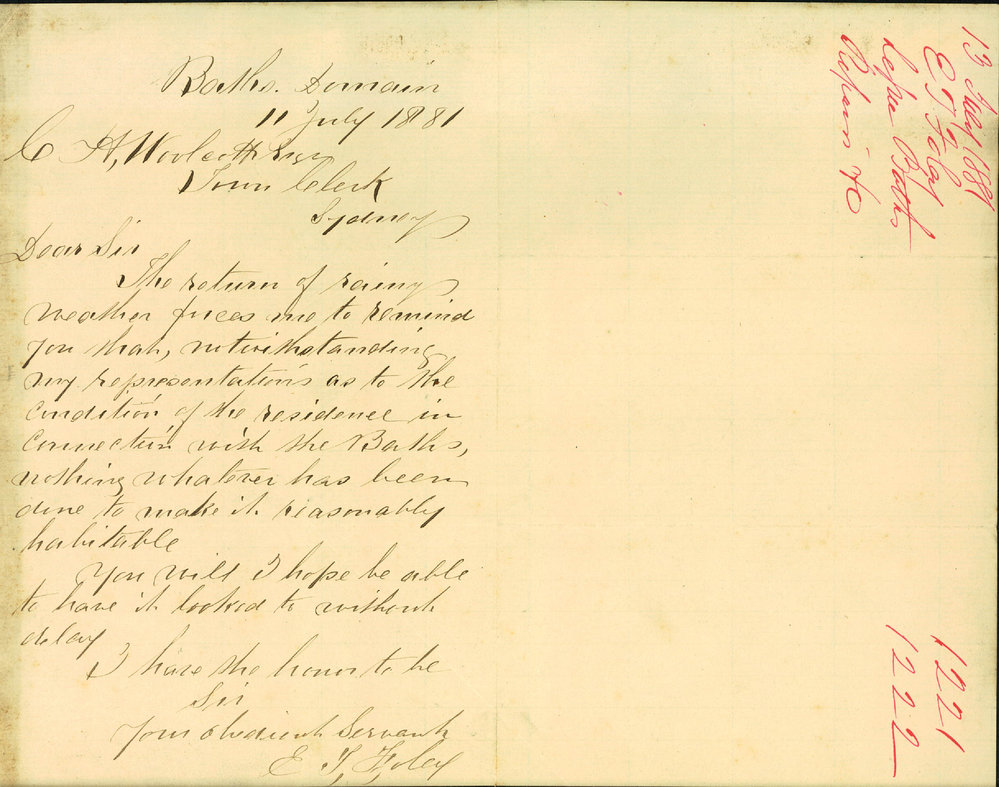 Baths. Domain
11 July 1881
C H, Woolcott Esqr
Town Clerk
Sydney
Dear Sir
The return of rainy
weather forces me to remind
you that, notwithstanding
my representations as to the
condition of the residence in
connection with the Baths,
nothing whatever has been
done to make it reasonably
habitable
You will I hope be able
to have it looked to without
delay
I have the honor to be
Sir
Your obedient Servant
E T, Foley
13 July 1881
E T Foley
Baths
Repairs &c
1221
1222